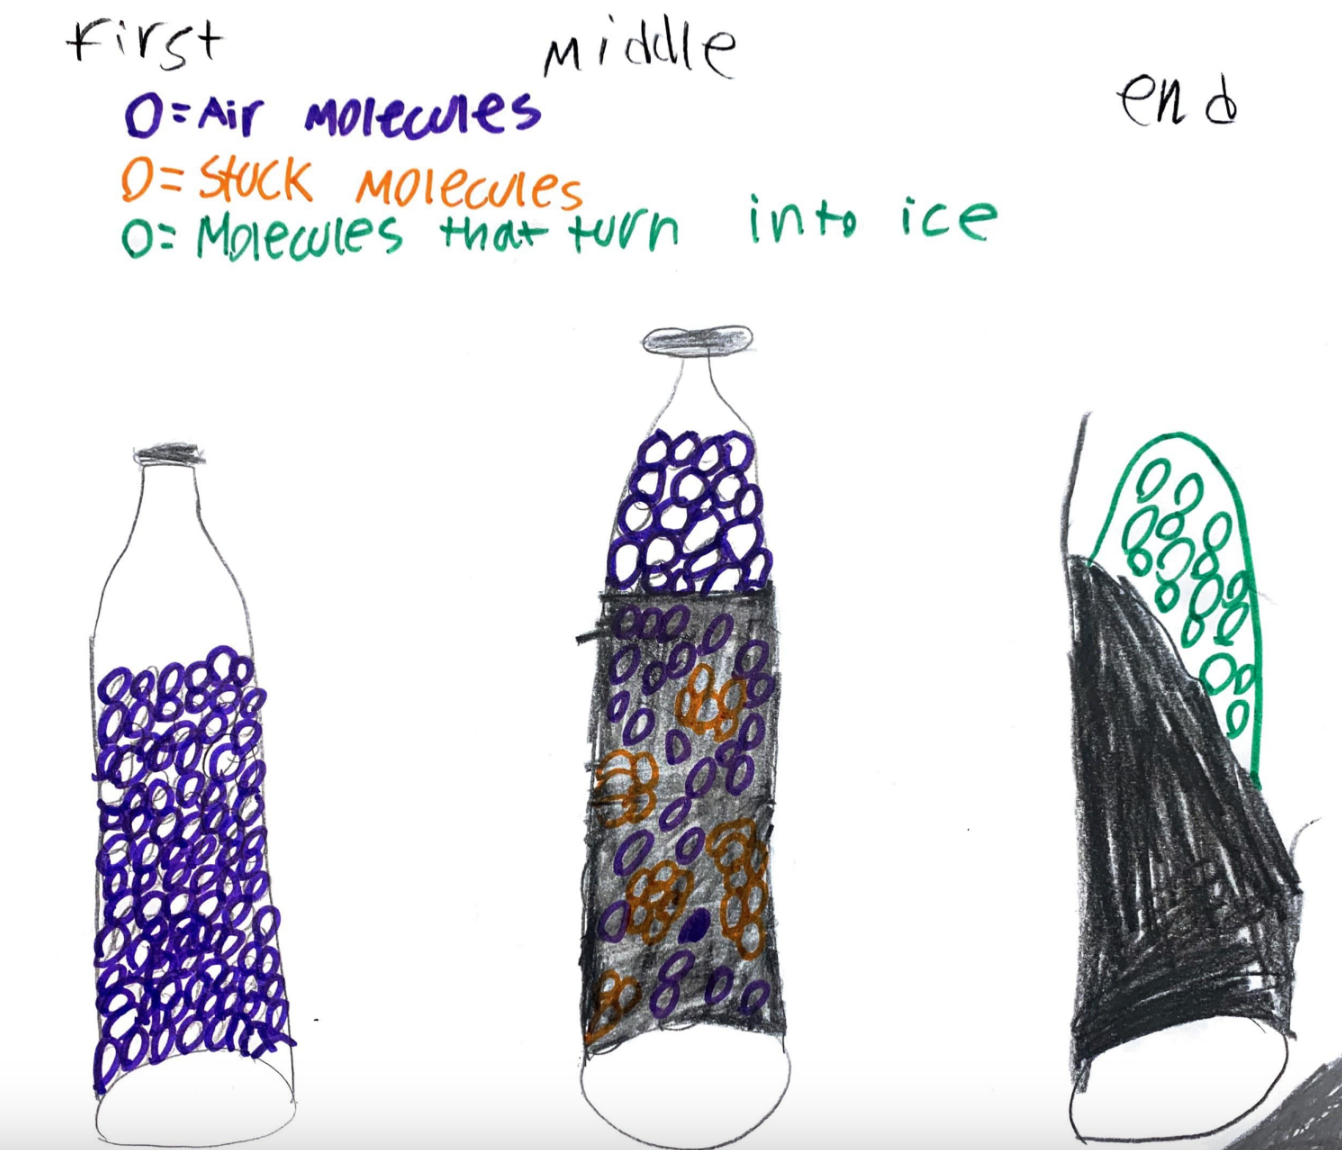 First
Middle
end
O=Air Molecules
O=Stuck Molecules
O=Molecules that turn into ice